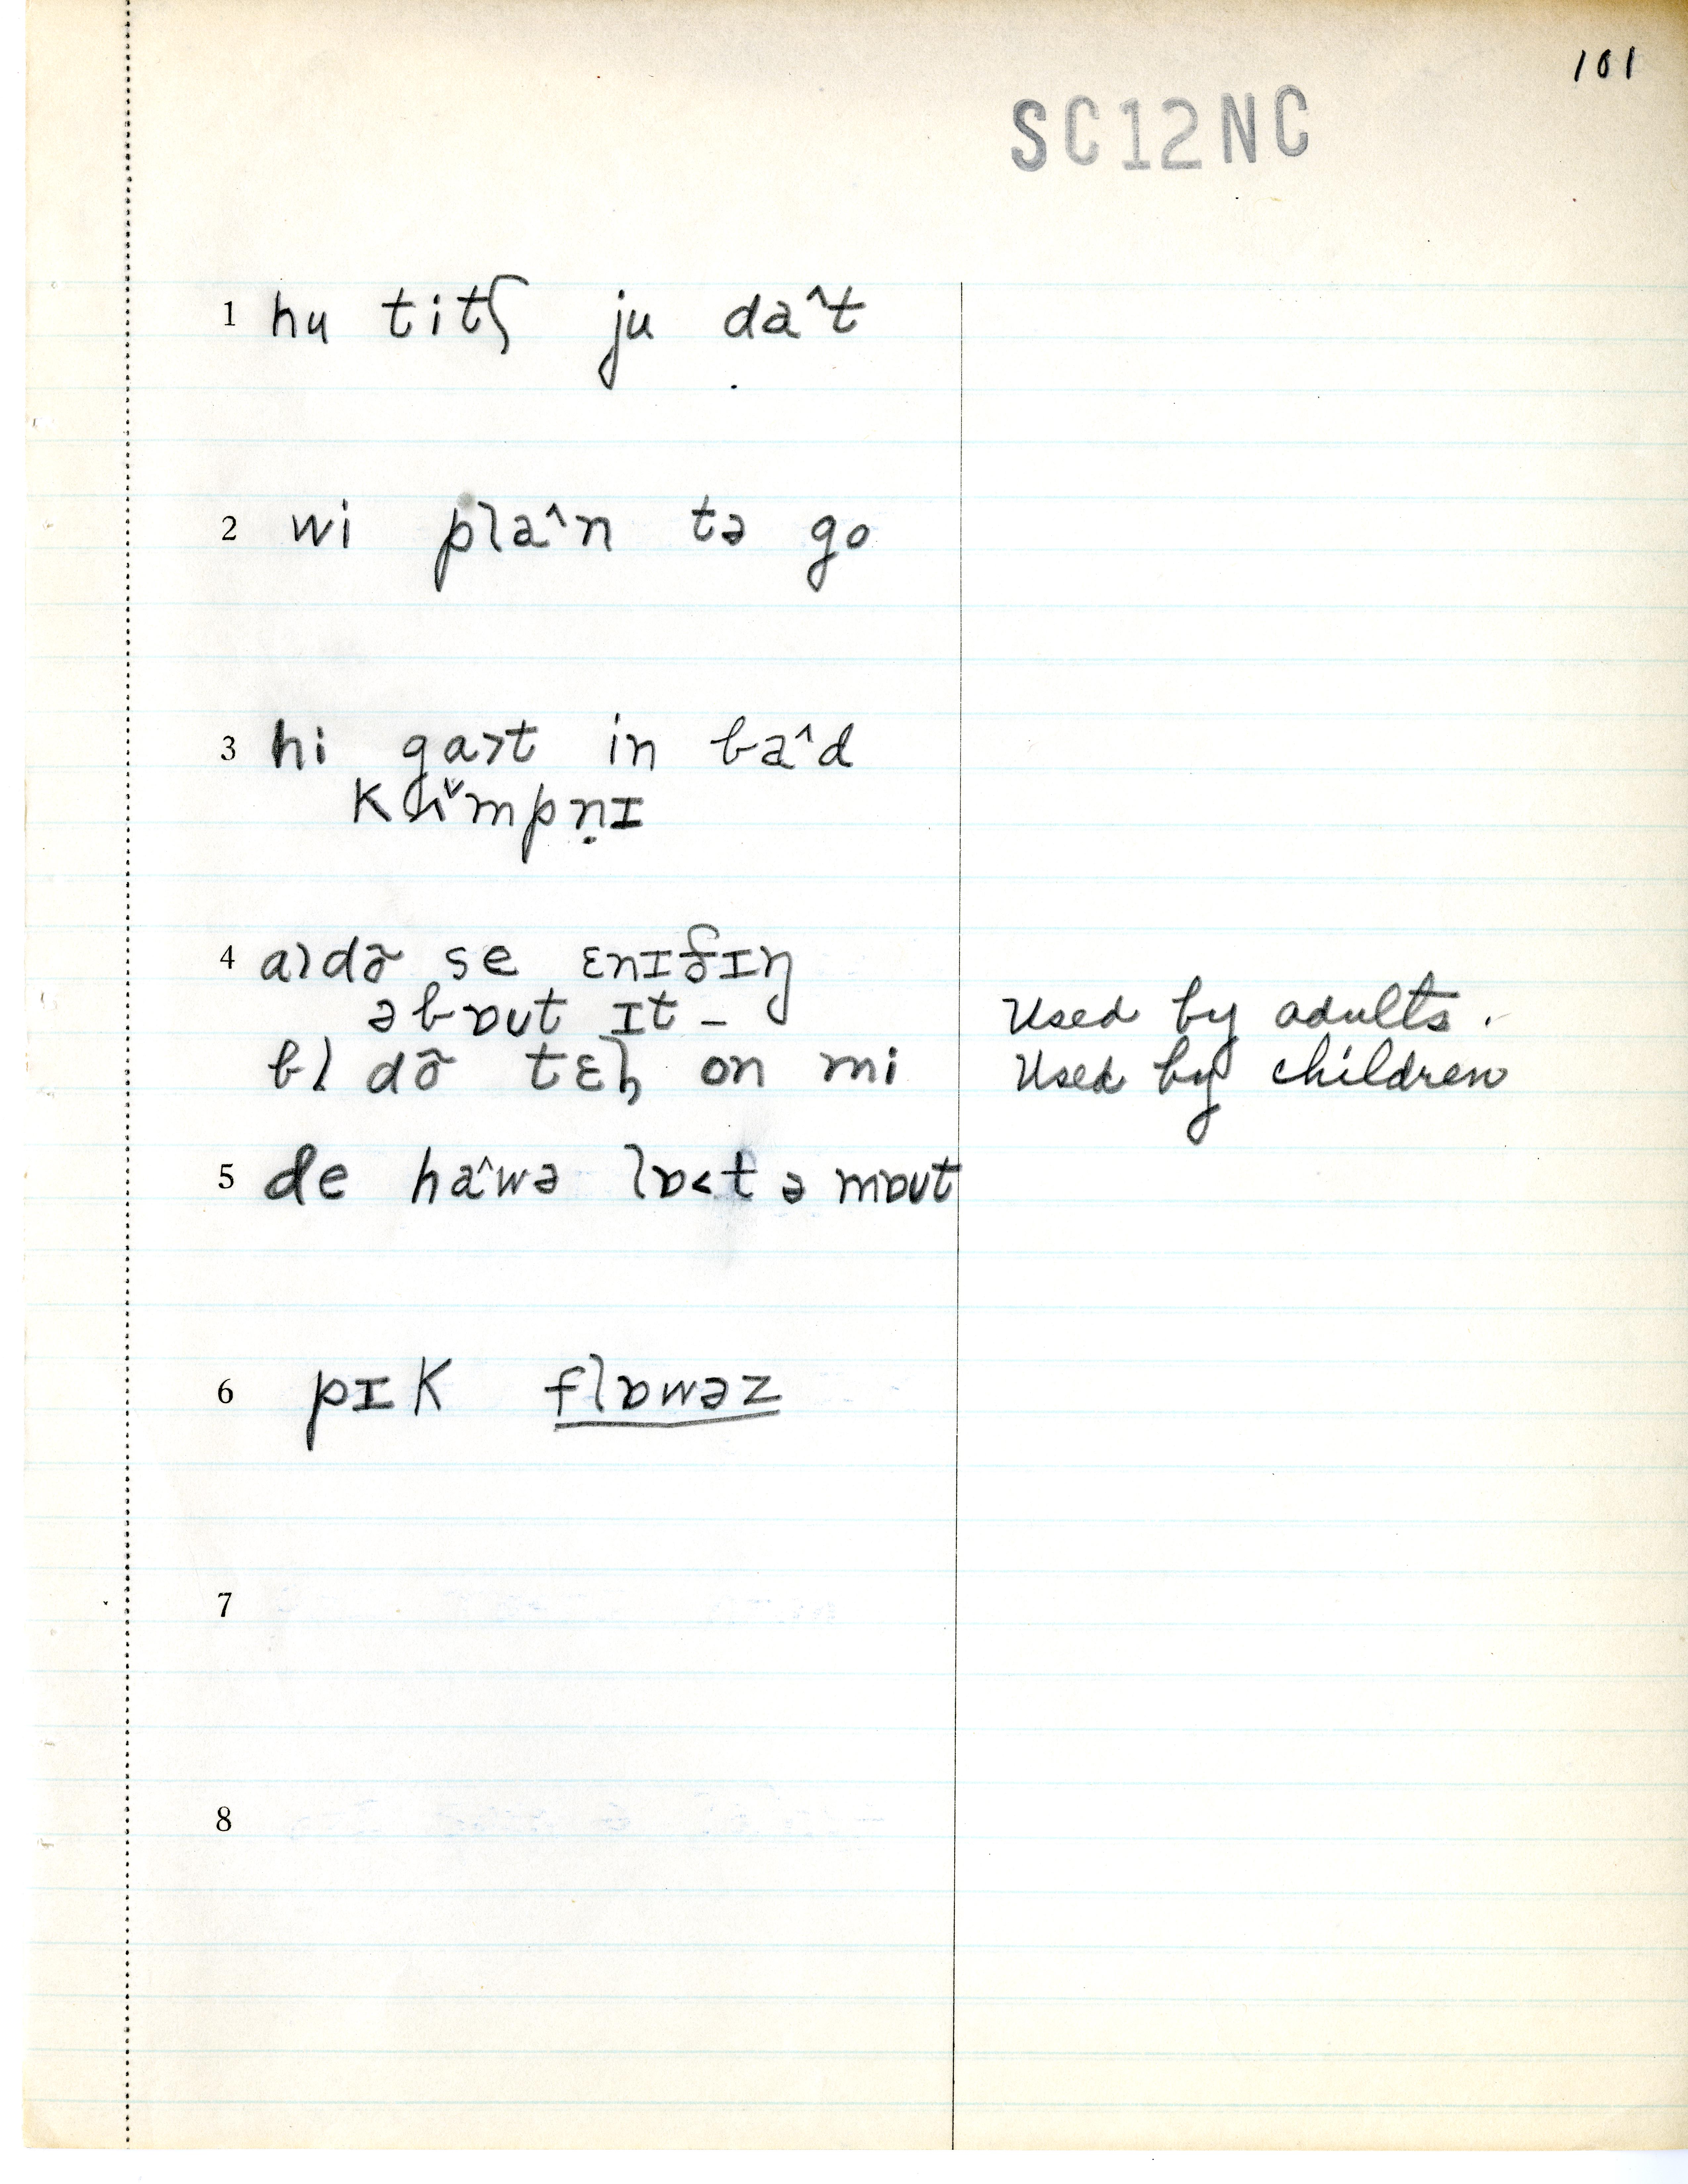 101
SC12NC
1 hu titʃ ju da^t
2 wi pla^n tə go
3 hi ga>t in ba^d
kɑˇmpn̩ɪ
4 a) dõ se ɛnɪðɪŋ
əbɒut ɪt –
Used by adults.
b) dõ tɛl̥ on mi
Used by children
5 de ha^wə lɒ<t ə mɒut
6 pɪk flɒwəz
7
8